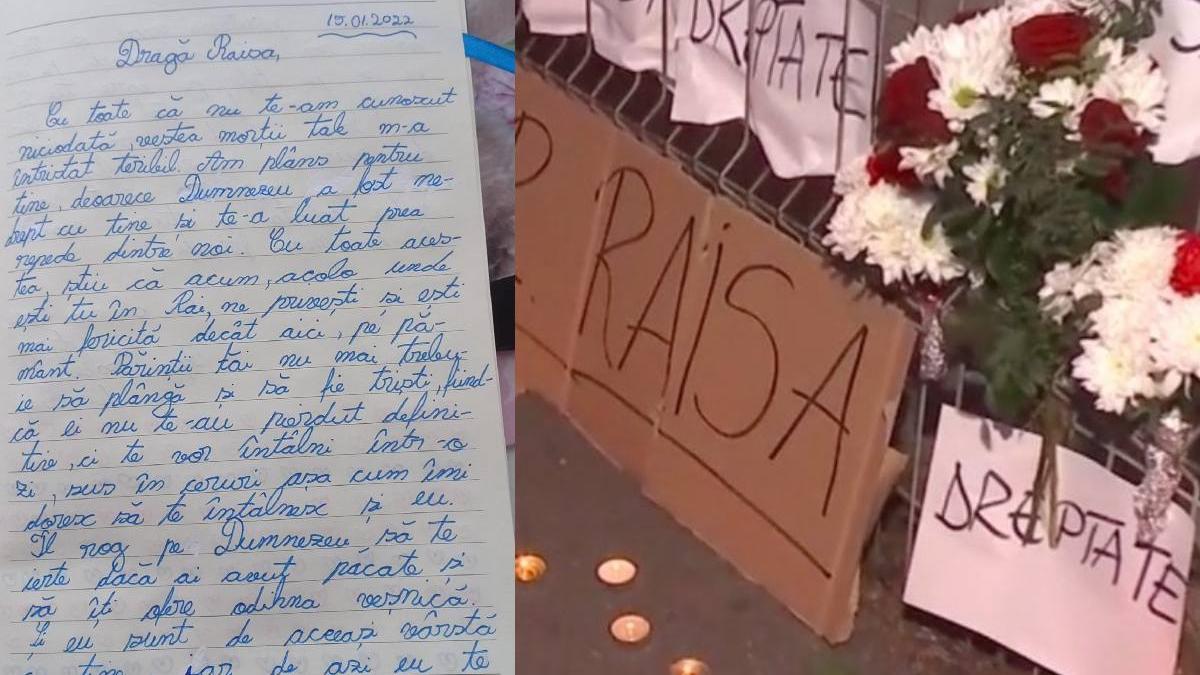 15.01.2022
Dragă Raisa,
Cu toate că nu te-am cunoscut
niciodată, vestea morții tale m-a
întristat teribil. Am plâns pentru
tine, deoarece Dumnezeu a fost ne-
drept cu tine și te-a luat prea
repede dintre noi. Cu toate aces-
tea, știu că acum, acolo unde
ești tu în Rai, ne privești și ești
mai fericită decât aici, pe pă-
mânt. Părinții tăi nu mai trebu-
ie să plângă și să fie triști, fiind-
că ei nu te-au pierdut defini-
tive, ci te vor întâlni într-o
zi, sus în ceruri așa cum îmi
doresc să te întâlnesc și eu.
Îl rog pe Dumnezeu să te
ierte dacă ai avut păcate și
să îți ofere odihna veșnică.
Și eu sunt de aceeași vârstă
cu tine, iar de azi eu te
DREPTATE
RAISA
DREPTATE